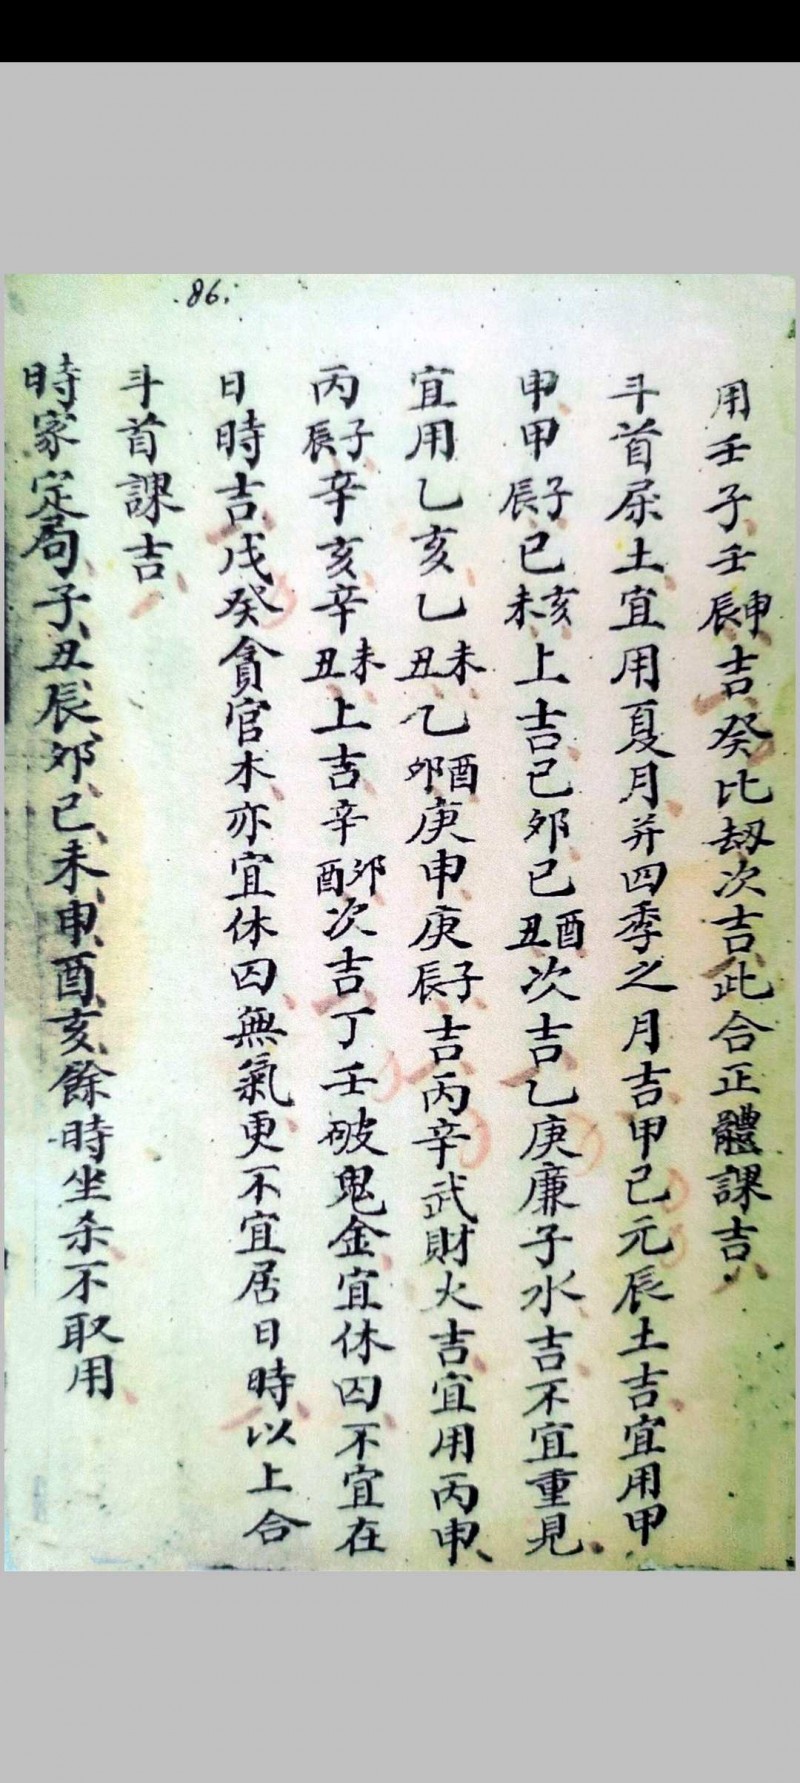 86.
用壬子壬申辰吉癸比劫次吉此合正體課吉
斗首屎土宜用夏月并四季之月吉甲己元辰土吉宜用甲
申甲子辰己亥未上吉己卯己酉丑次吉乙庚廉子水吉不宜重見
宜用乙亥乙未丑乙酉卯庚申庚子辰吉丙辛武財火吉宜用丙申
丙子辰辛亥辛未丑上吉辛卯酉次吉丁壬破鬼金宜休囚不宜在
日時吉戊癸貪官木亦宜休囚無氣更不宜居日時以上合
斗首課吉
時家定局子丑辰卯巳未申酉亥餘時坐杀不取用